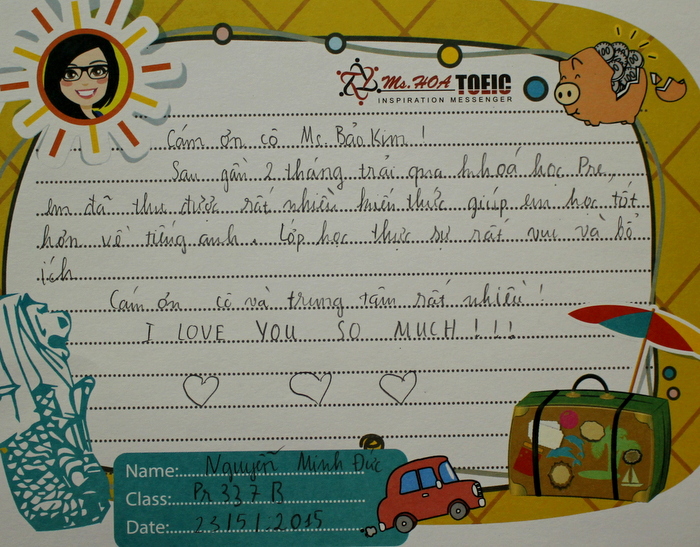 Ms.HOA TOEIC
INSPIRATION MESSENGER
Cám ơn cô Ms. Bảo Kim !
Sau gần 2 tháng trải qua khoá học Pre,
em đã thu được rất nhiều kiến thức giúp em học tốt
hơn về tiếng anh. Lớp học thực sự rất vui và bổ
ích
Cám ơn cô và trung tâm rất nhiều !
I LOVE YOU SO MUCH ! ! !
Name: Nguyễn Minh Đức
Class: Pr 327 B
Date: 23/5/.2015